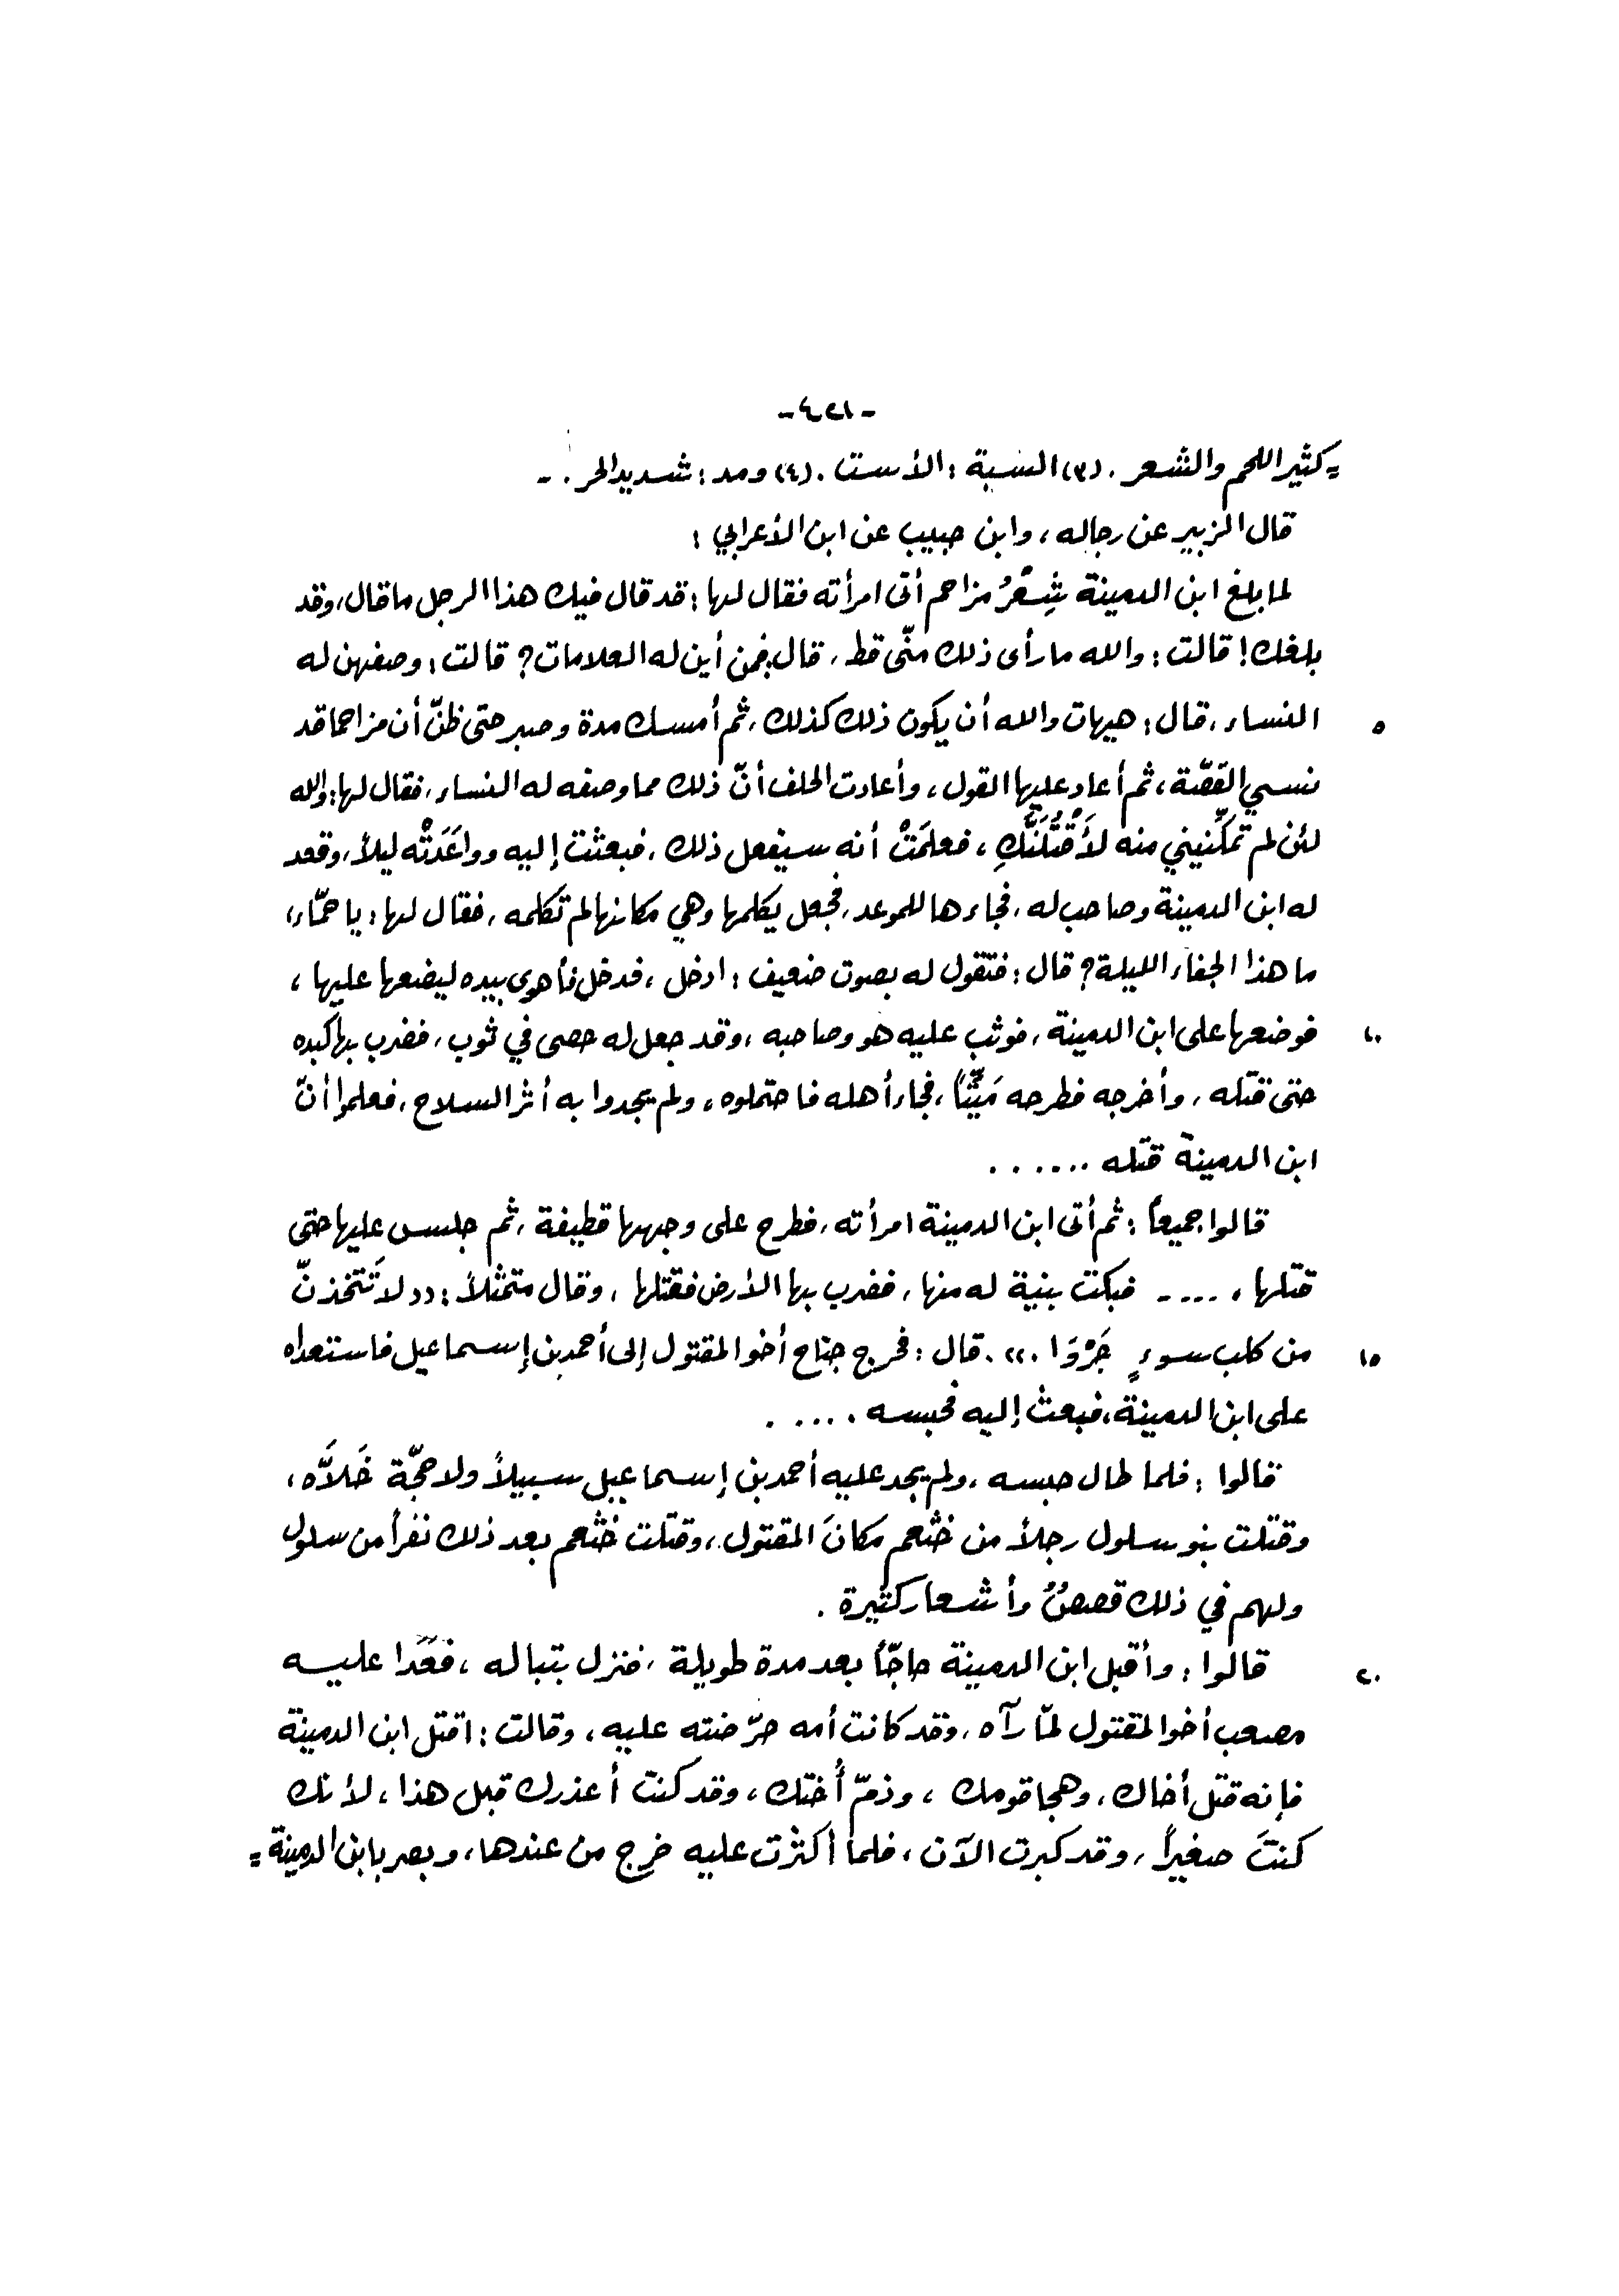 -٤٢١-
= كثير اللحم والشعر . (٣) السَبة : الأست . (٤) ومد : شديد الحر . -
قال الزبير عن رجاله ، وابن حبيب عن ابن الأعرابي :
لما بلغ ابن الدمينة شِعْرُ مزاحم أتى امرأته فقال لها : قد قال فيك هذا الرجل ما قال ، وقد
بلغك ! قالت : والله ما رأى ذلك منّي قط ، قال : فمن أين له العلامات ؟ قالت : وصفهن له
٥ النساء ، قال : هيهات والله أن يكون ذلك كذلك ، ثم أمسك مدة وصبر حتى ظنّ أن مزاحما قد
نسي القصّة ، ثم أعاد عليها القول ، وأعادت الحلف أنّ ذلك مما وصفه له النساء ، فقال لها : والله
لئن لم تمكّنيني منه لأَقْتُلَنَّكِ ، فعلمَتْ أنه سيفعل ذلك ، فبعثت إليه وواعَدَتْه ليلاً ، وقعد
له ابن الدمينة وصاحب له ، فجاءها للموعد ، فجعل يكلمها وهي مكانها لم تكلمه ، فقال لها : يا حمّاء ،
ما هذا الجفاء الليلة ؟ قال : فتقول له بصوت ضعيف : ادخل ، فدخل فأهوى بيده ليضعها عليها ،
١٠ فوضعها على ابن الدمينة ، فوثب عليه هو وصاحبه ، وقد جعل له حصى في ثوب ، فضرب بها كبده
حتى قتله ، وأخرجه فطرحه مَيِّتاً ، فجاء أهله فاحتملوه ، ولم يجدوا به أثر السلاح ، فعلموا أنّ
ابن الدمينة قتله ......
قالوا جميعاً : ثم أتى ابن الدمينة امرأته ، فطرح على وجهها قطيفة ، ثم جلس عليها حتى
قتلها ، .... فبكت بنية له منها ، فضرب بها الأرض فقتلها ، وقال متمثلاً : «لا تَتخذنّ
١٥ من كلب سوءٍ جَرْوَا .» . قال : فخرج جناح أخو المقتول إلى أحمد بن إسماعيل فاستعداه
على ابن الدمينة ، فبعث إليه فحبسه .....
قالوا : فلما طال حبسه ، ولم يجد عليه أحمد بن إسماعيل سبيلاً ولا حجّة خَلاَّه ،
وقتلت بنو سلول رجلاً من خثعم مكانَ المقتول ، وقتلت خثعم بعد ذلك نفراً من سلول
ولهم في ذلك قصصٌ وأشعار كثيرة .
٢٠ قالوا : وأقبل ابن الدمينة حاجّاً بعد مدة طويلة ، فنزل بتباله ، فعَدَا عليه
مصعب أخو المقتول لمّا رآه ، وقد كانت أمه حرّضته عليه ، وقالت : اقتل ابن الدمينة
فإنه قتل أخاك ، وهجا قومك ، وذمّ أُختك ، وقد كنت أعذرك قبل هذا ، لأنك
كنتَ صغيراً ، وقد كبرت الآن ، فلما أكثرت عليه خرج من عندها ، وبصر بابن الدمينة =